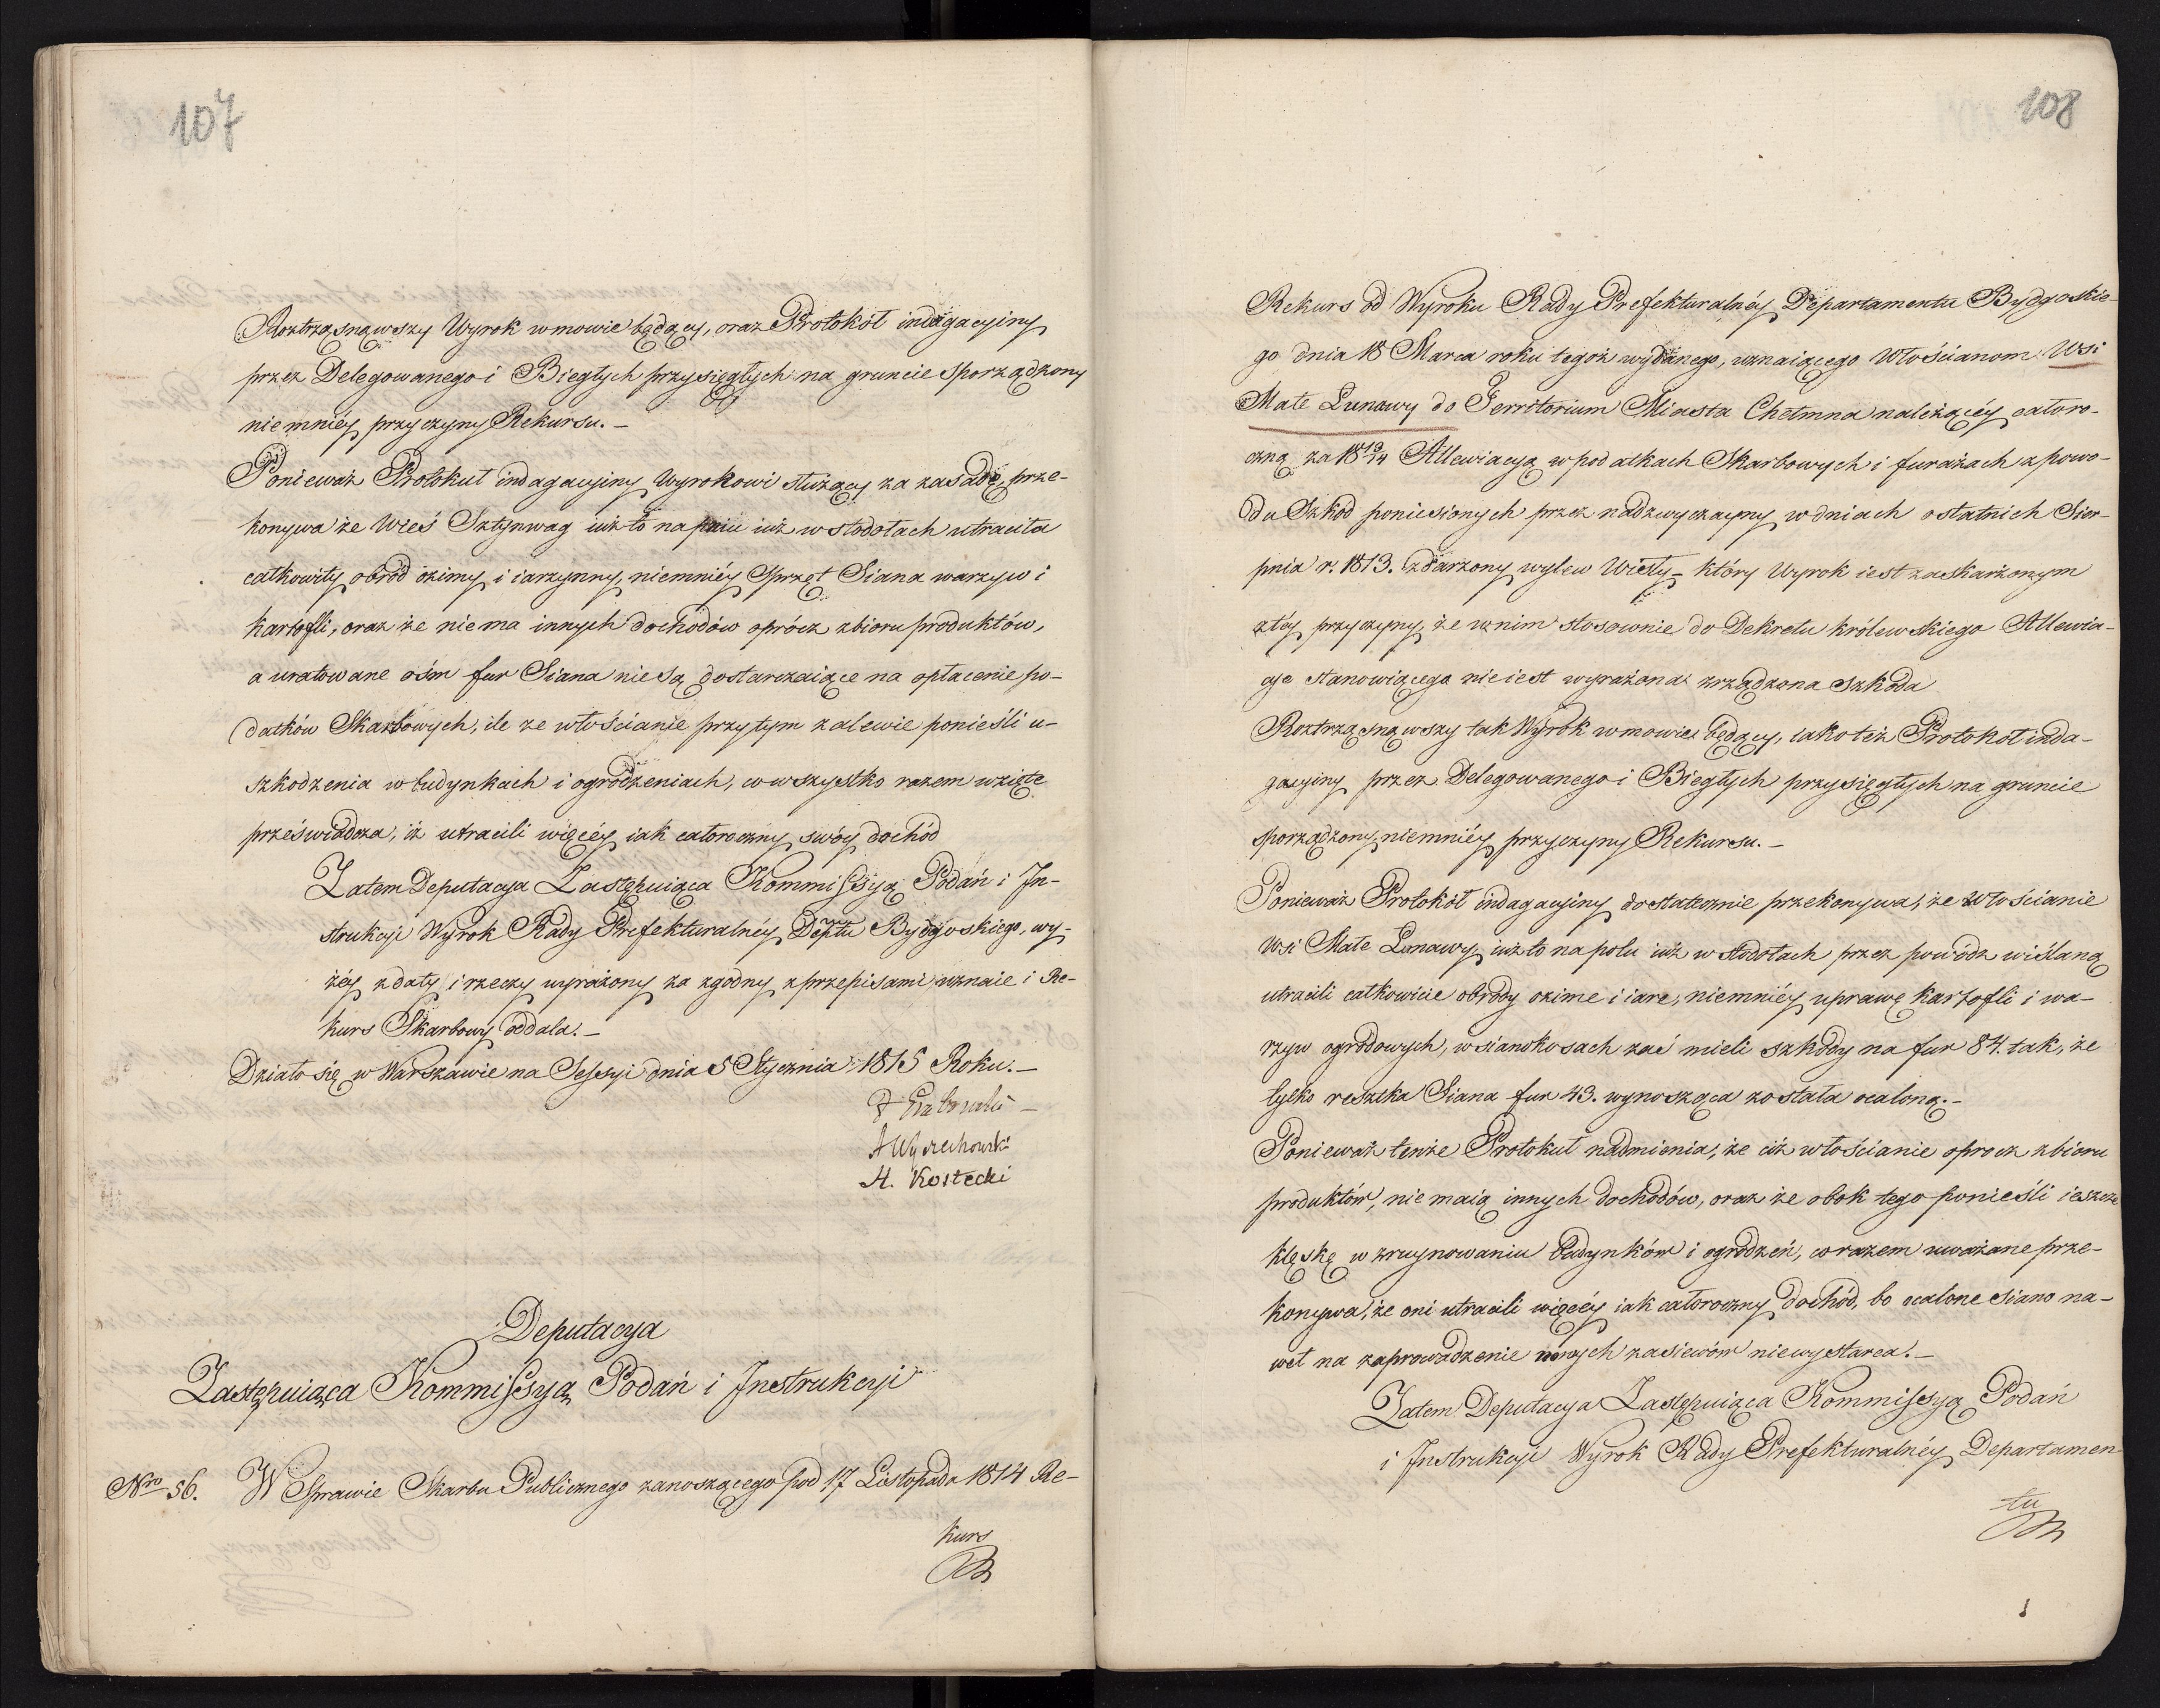 107
Roztrząsnąwszy Wyrok w mowie będący, oraz Protokół indagacyiny
przez Delegowanego i Biegłych przysięgłych na gruncie sporządzony
niemniéy przyczyny Rekursu. –
Ponieważ Protokuł indagacyiny Wyrokowi służący za zasadę, prze-
konywa że Wieś Sztynwag iuż to na pniu iuż w stodołach utraciła
całkowity obród ozimy i iarzynny, niemniéy Sprzęt Siana warzyw i
kartofli, oraz że nie ma innych dochodów oprócz zbioru produktów,
a uratowane ośm fur Siana nie są dostarczaiące na opłacenie po-
datków Skarbowych, ile że włościanie przy tym zalewie ponieśli u-
szkodzenia w budynkach i ogrodzeniach, co wszystko razem wzięte
przeświadcza, iż utracili więcéy iak całoroczny swóy dochód
Zatem Deputacya Zastępuiąca Kommissyą Podań i In-
strukcyi Wyrok Rady Prefekturalnéy Deptu Bydgoskiego, wy-
żéy z daty i rzeczy wyrażony za zgodny z przepisami uznaie i Re-
kurs Skarbowy oddala. –
Działo się w Warszawie na Sessyi dnia 5 Stycznia 1815 Roku. –
A Wyczechowski
H. Kostecki
Deputacya
Zastępuiąca Kommissyą Podań i Instrukcyi
Nro 56. W Sprawie Skarbu Publicznego zanoszącego pod 17 Listopada 1814 Re-
kurs
108
Rekurs od Wyroku Rady Prefekturalnéy Departamentu Bydgoskie-
go dnia 18 Marca roku tegoż wydanego, uznaiącego Włościanom Wsi
Małe Lunawy do Territorium Miasta Chełmna należącéy całoro-
czną za 1813/14 Allewiacyą w podatkach Skarbowych i furażach z powo-
du Szkód poniesionych przez nadzwyczayny w dniach ostatnich Sier-
pnia r. 1813. zdarzony wylew Wisły – który Wyrok iest zaskarżonym
z téy przyczyny, że w nim stosownie do Dekretu królewskiego Allewia-
cye stanowiącego nie iest wyrażona zrządzona szkoda
Roztrząsnąwszy tak Wyrok w mowie będący, iako też Protokół inda-
gacyiny przez Delegowanego i Biegłych przysięgłych na gruncie
sporządzony, niemniéy przyczyny Rekursu. –
Ponieważ Protokół indagacyiny dostatecznie przekonywa, że Włościanie
Wsi Małe Lunawy, iuż to na polu iuż w stodołach przez powódz wiślaną
utracili całkowicie obrody ozime i iare, niemniéy uprawę kartofli i wa-
rzyw ogrodowych, w sianokosach zaś mieli szkody na fur 84. tak, że
tylko resztka Siana fur 43. wynosząca została ocaloną. –
Ponieważ tenże Protokuł nadmienia, że ciż włościanie oprocz zbioru
produktów, nie maią innych dochodów, oraz że obok tego ponieśli ieszcze
klęskę w zruynowaniu budynków i ogrodzeń, co razem uważane prze-
konywa, że oni utracili więcéy iak całoroczny dochód, bo ocalone siano na-
wet na zaprowadzenie nowych zasiewów niewystarca. –
Zatem Deputacya Zastępuiąca Kommissyą Podań
i Instrukcyi Wyrok Rady Prefekturalnéy Departamen-
tu